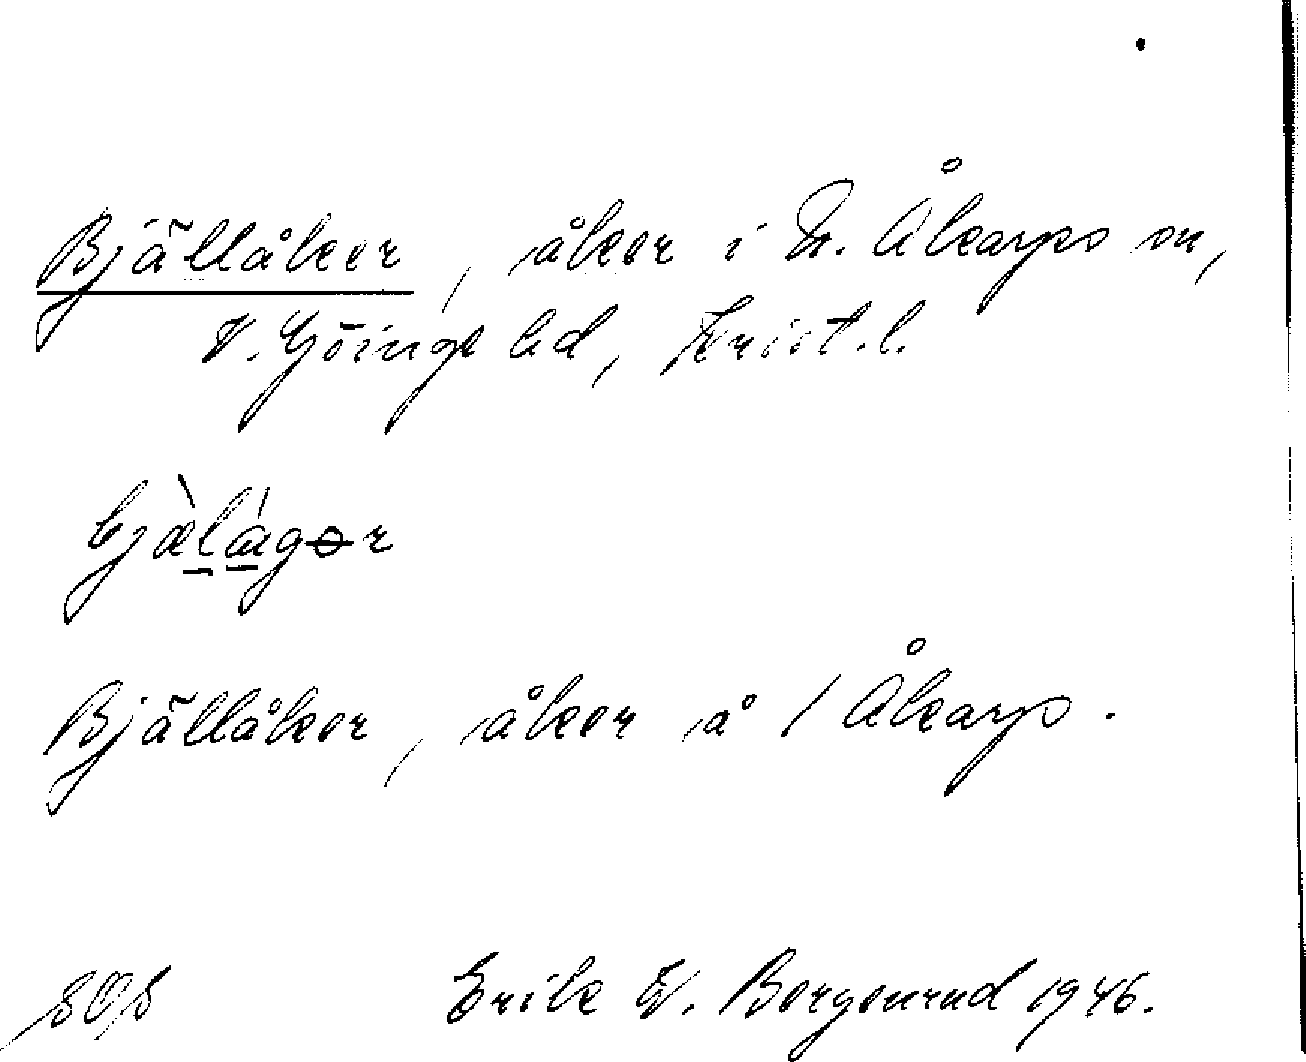 Bjällåker, åker i N. Åkarps sn,
V. Göinge hd, Krist. l.
Bjällåker, åker å 1 Åkarp.
Erik W. Bergenrud 1946.